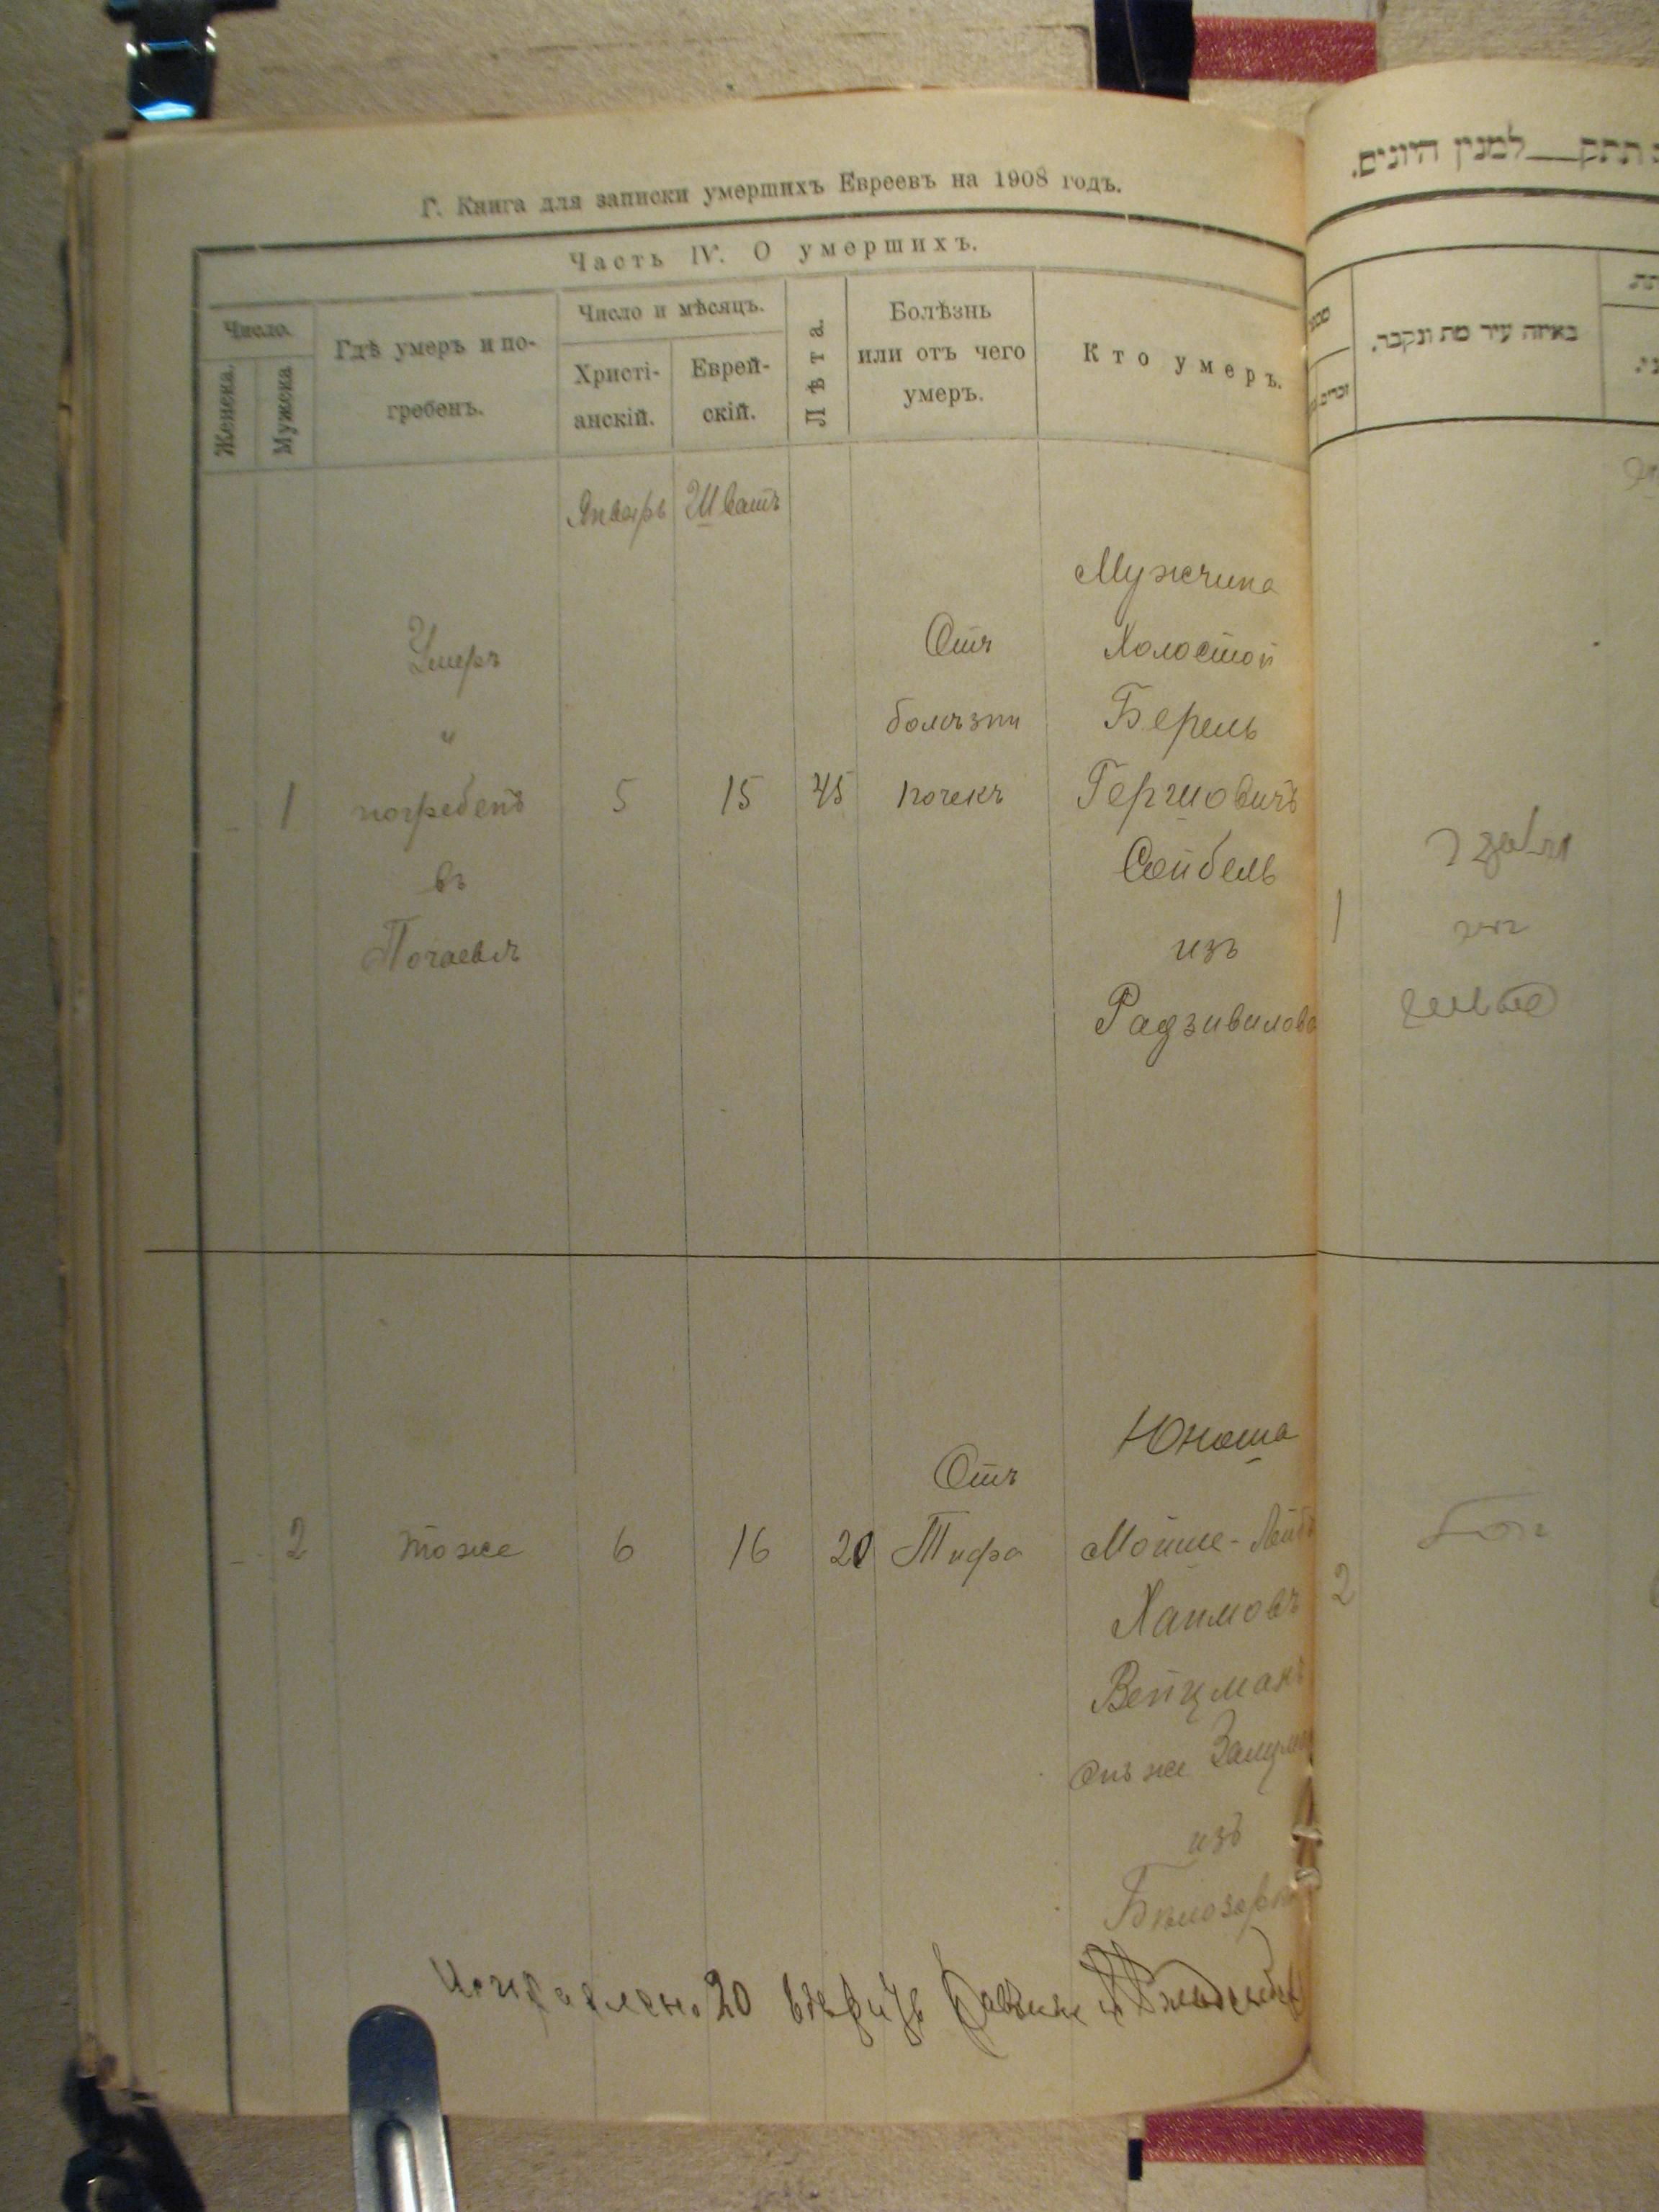 Г. Книга для записки умершихъ Евреевъ на 1908 годъ.
Часть IV. О умершихъ.
Число.
Женска.
Мужска
Гдѣ умеръ и по-
гребенъ.
Число и мѣсяцъ.
Христі-
анскій.
Еврей-
скій.
Лѣта.
Болѣзнь
или отъ чего
умеръ.
Кто умеръ.
Январь Шватъ
1
Умеръ
и
погребенъ
въ
Почаевѣ
5
15
45
Отъ
болѣзни
почекъ
Мужчина
Холостой
Берель
Гершовичъ
Сейбель
изъ
Радзивилова
2
тоже
6
16
20
Отъ
Тифа
Юноша
Мойше-Лейбъ
Хаимовъ
Вейцманъ
онъ же
изъ
20
למנין היונים.
באיזה עיר מת ונקבר.
1
2